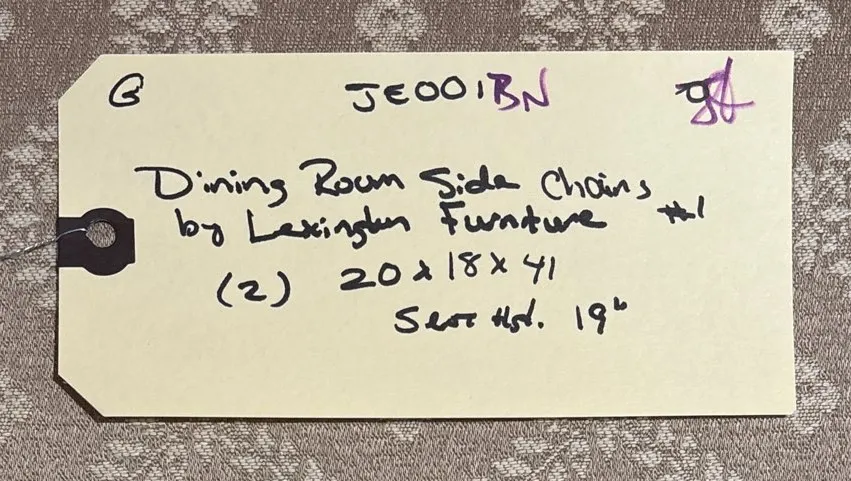 G JE001BN
Dining Room Side Chairs
by Lexington Furniture #1
(2) 20 x 18 x 41
Seat Hgt. 19"